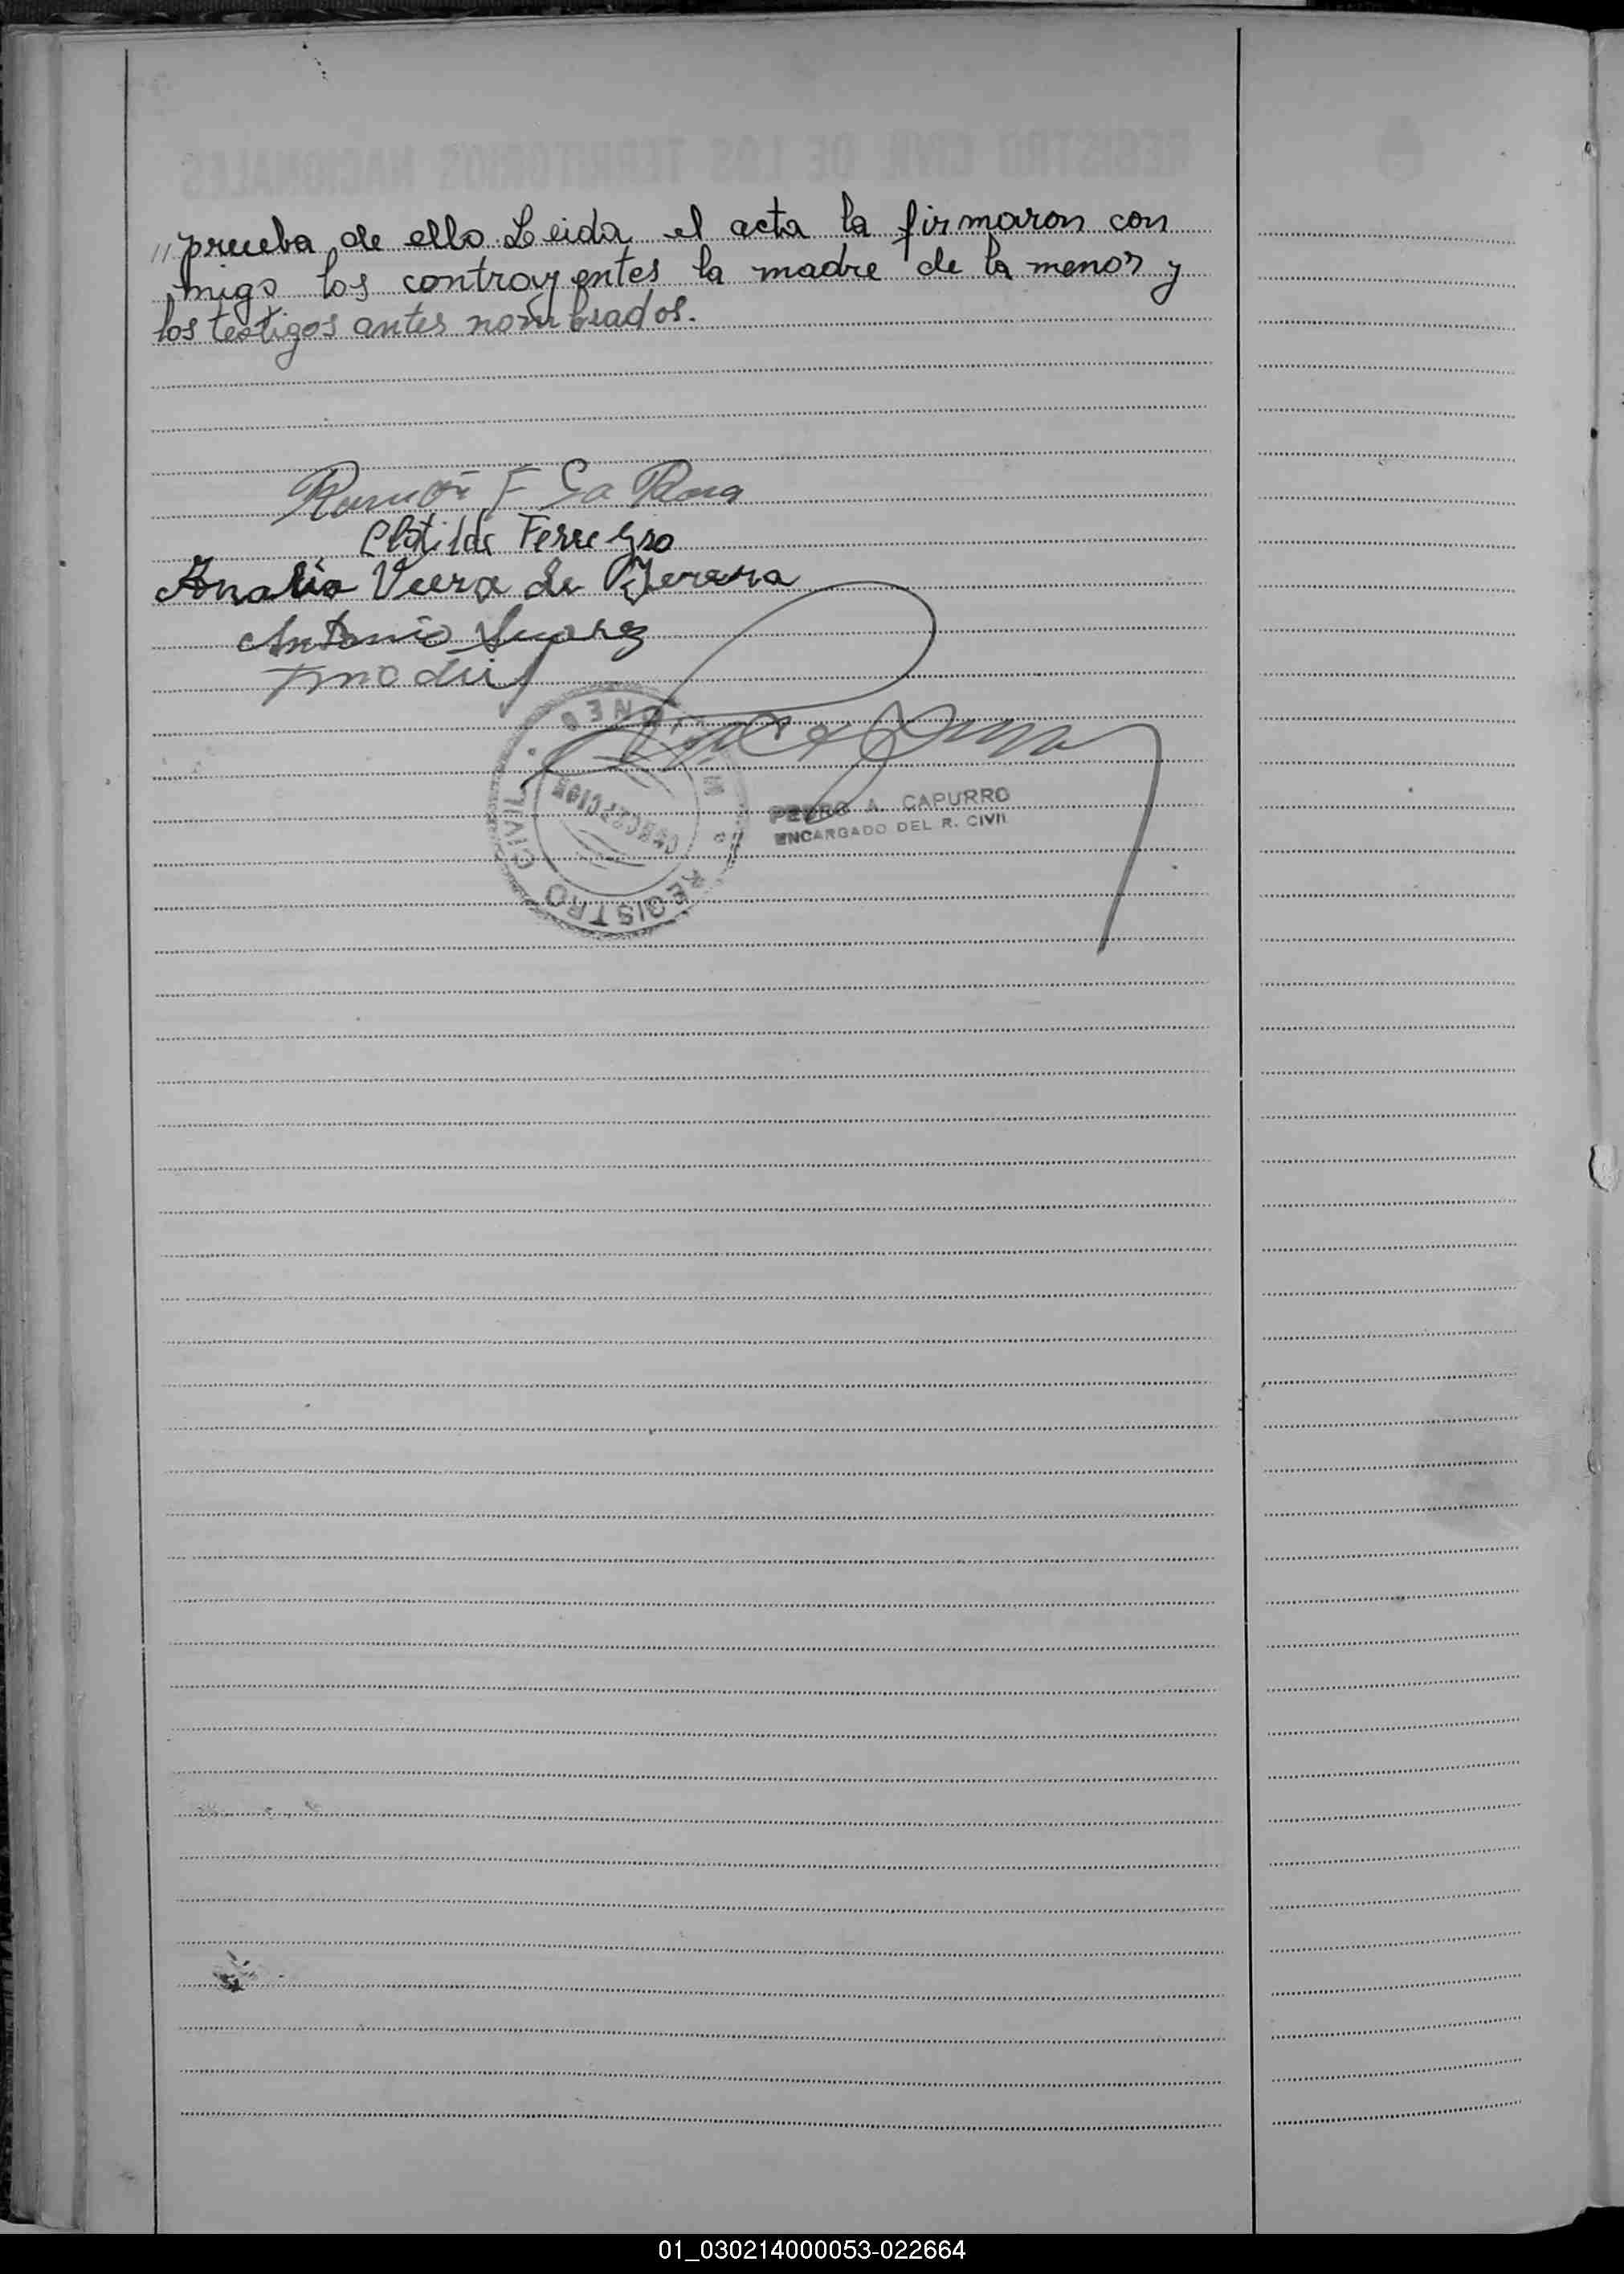 REGISTRO CIVIL DE LOS TERRITORIOS NACIONALES
// prueba de ello. Leida el acta la firmaron con
migo los contrayentes la madre de la menor y
los testigos antes nombrados.
Ramón F La
Clotilde
Analia de
Antonio Suarez
REGISTRO CIVIL
CONCEPCION
PEDRO A. CAPURRO
ENCARGADO DEL R. CIVIL
01_030214000053-022664